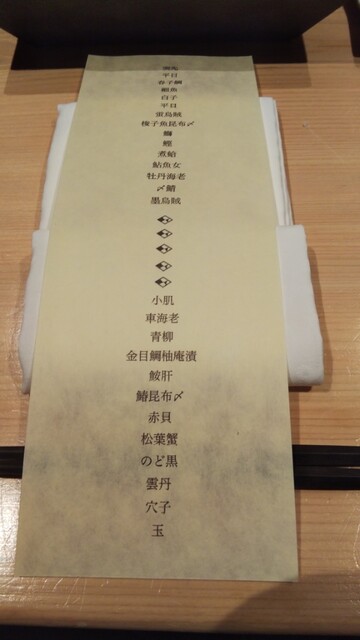 平目
春子鯛
白子
平貝
雷烏賊
梭子魚昆布〆
鰤
鰹
煮蛤
鮎魚女
牡丹海老
〆鯖
墨烏賊
小肌
車海老
青柳
金目鯛柚庵漬
鮟肝
鰆昆布〆
赤貝
松葉蟹
のど黒
雲丹
穴子
玉